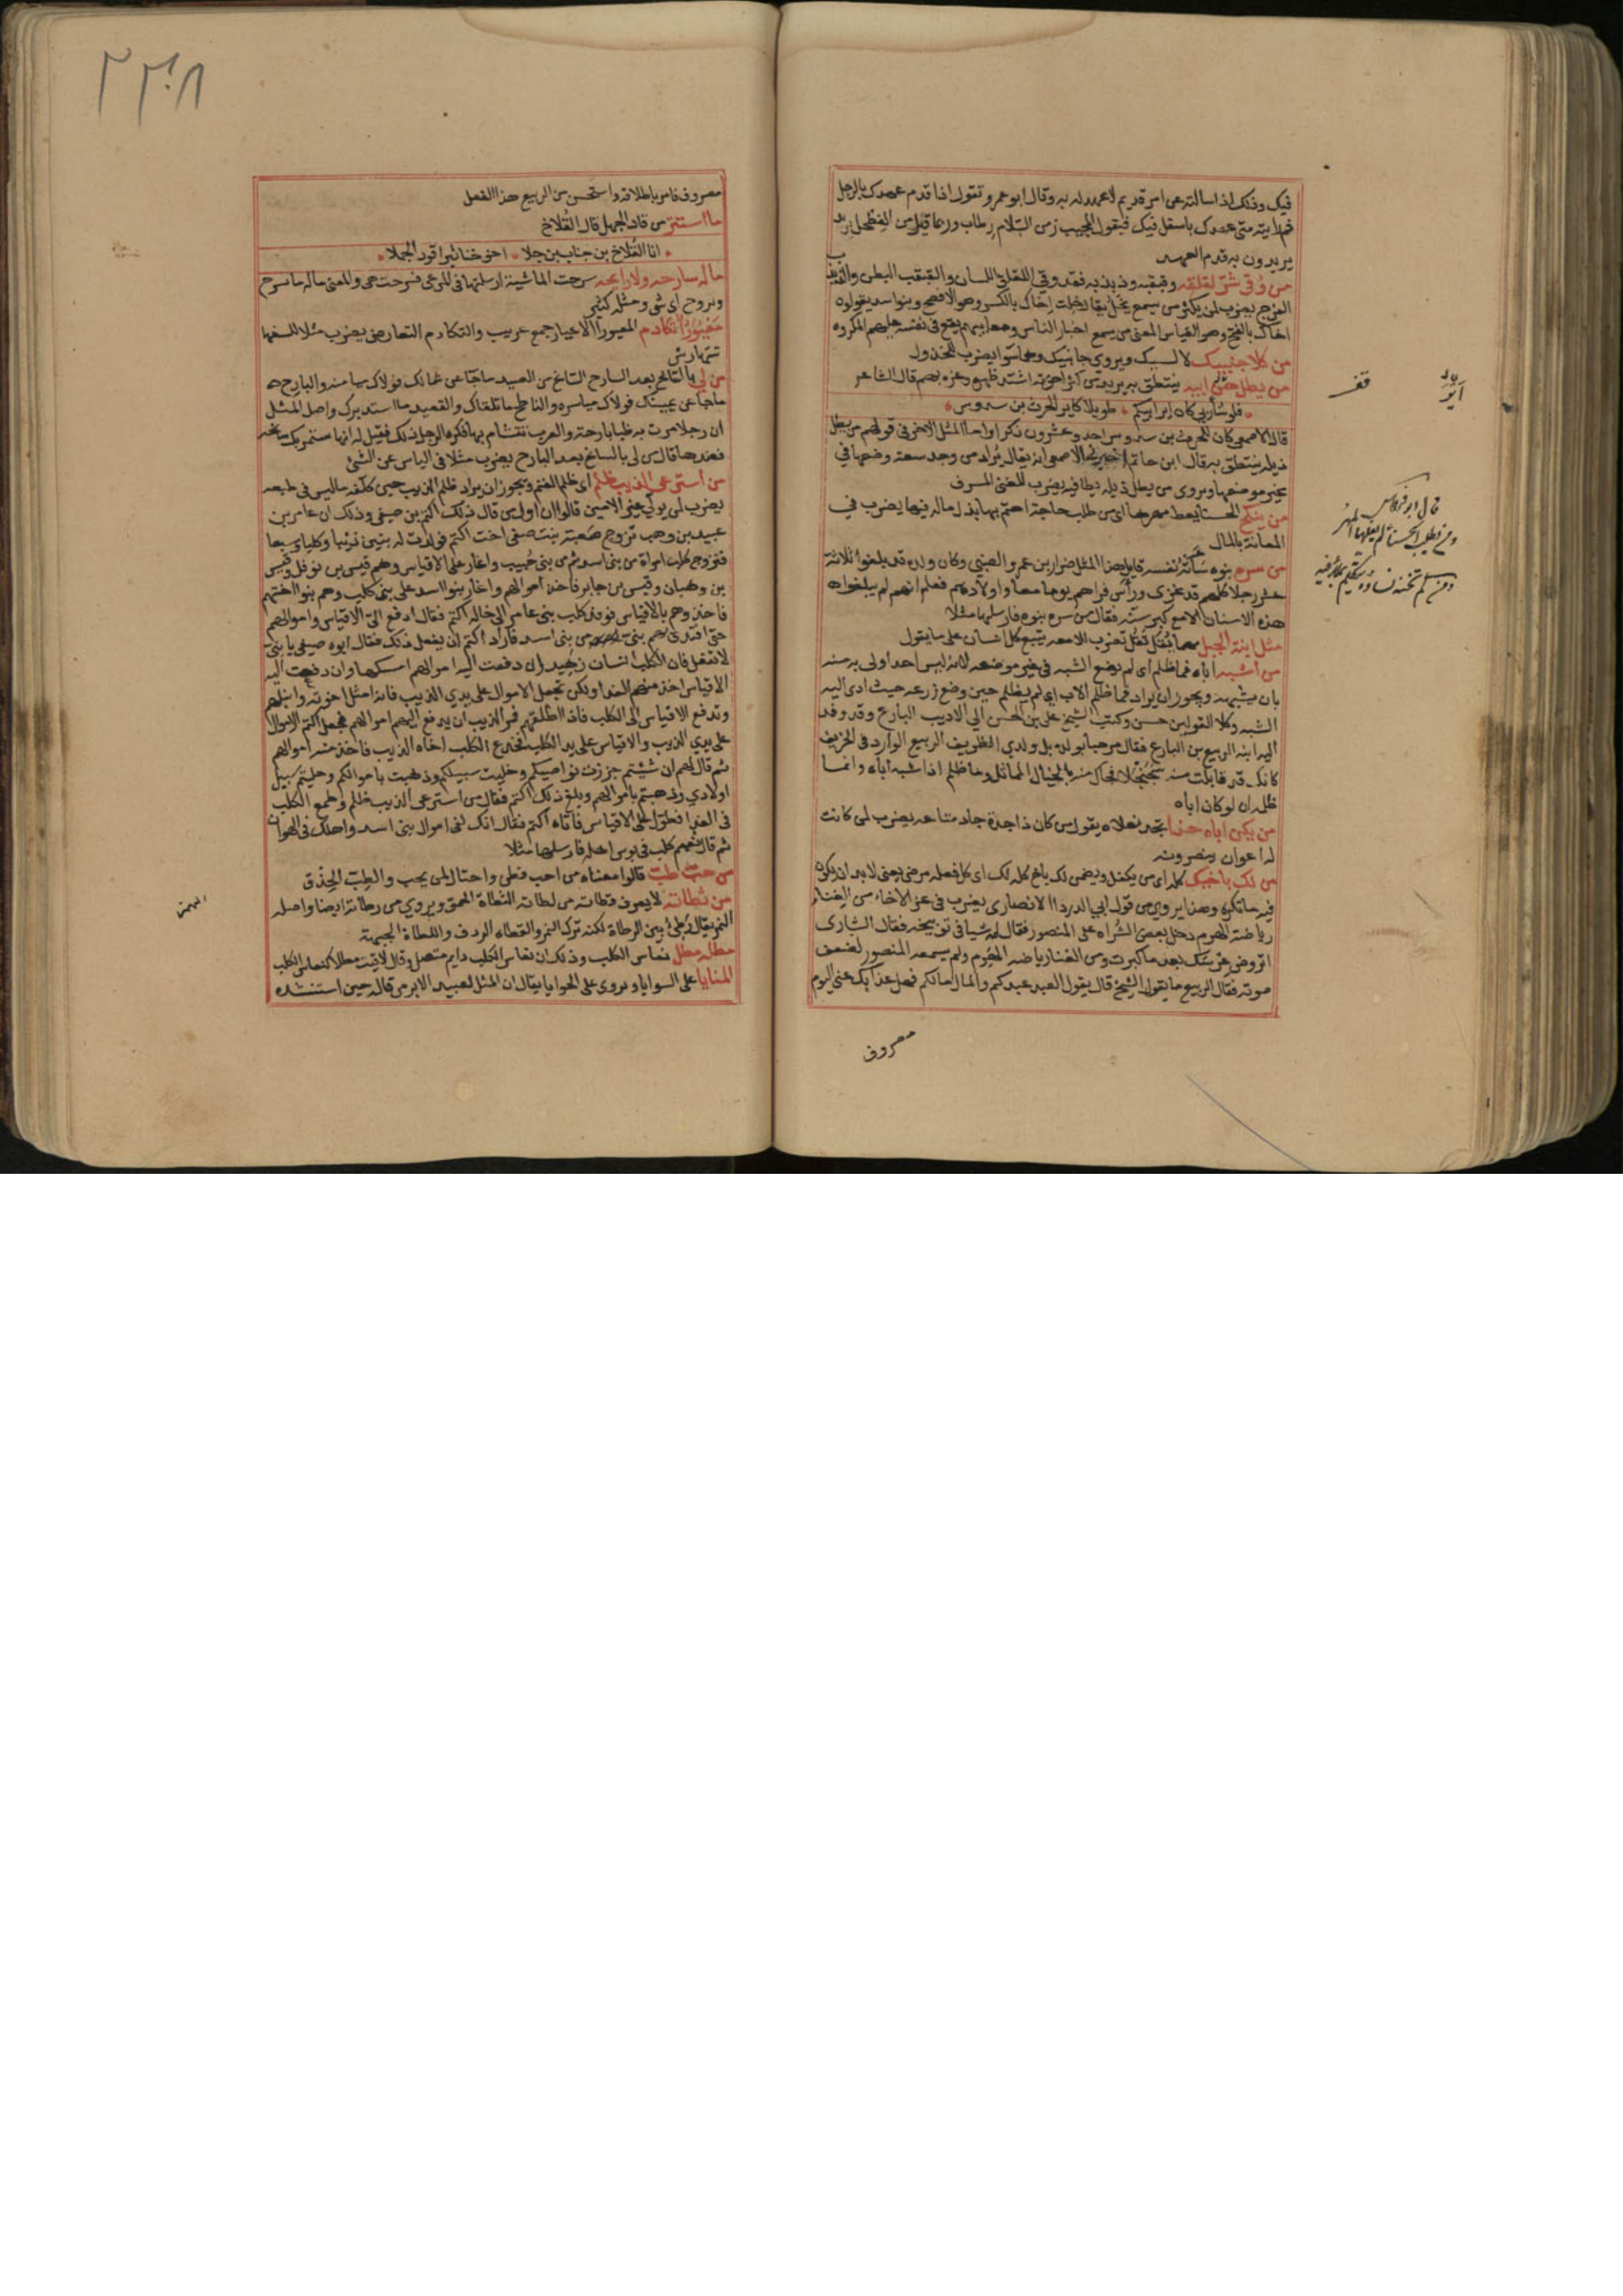 فيك وذلك اذا سالته عن امر قديم لا عهد له به وقال ابو عمرو تقول اذا قدم عهدك بالرجل
ثم رايته متى عهدك باسفل فيك فيقول المجيب زمن السلام رطاب وربما قيل من الفطحل
يريدون به قدم العهد
من وقى شر لقلقه وقبقبه وذبذبه فقد وقى اللقلق اللسان والقبقب البطن والذبذب
الفرج يضرب لمن يكثر من يسمع يخل يقال خلت اخاك بالكسر وهو الافصح وبنو اسد يقولون
اخاك بالفتح وهو القياس المعنى من يسمع اخبار الناس ومعايبهم يقع في نفسه عليهم المكروه
من كلا جنبيك لا لبيك ويروى جانبيك وهما سوا يضرب للمخذول
من يطل هن ابيه ينتطق به يريد من كثر اخوته اشتد ظهره وعزه بهم قال الشاعر
فلو شا ربي كان اير ابيكم طويلا كاير الحرث بن سدوس
قال الاصمعي كان للحرث بن سدوس احد وعشرون ذكرا واما المثل الاخر في قولهم من يطل
ذيله ينتطق به قال ابن حاتم اخبرني الاصمعي انه يقال يراد من وجد سعة وضعها في
غير موضعها ويروى من يطل ذيله يطا فيه يضرب للغني المسرف
من ينكح الحسنا يعط مهرها اى من طلب حاجة اهتم بها بذل ماله فيها يضرب في
المصانعة بالمال
من سره بنوه ساته نفسه قايل هذا المثل ضرار بن عمرو الضبي وكان ولده قد بلغوا ثلاثة
عشر رجلا كلهم قد غزى وراس فراهم يوما معا واولادهم فعلم انهم لم يبلغوا هذه
هذه الاسنان الا مع كبر سنه فقال من سره بنوه فارسلها مثلا
مثل ابنة الجبل مهما يقل تقل تضرب للامعه يتبع كل انسان على ما يقول
من اشبه اباه فما ظلم اى لم يضع الشبه في غير موضعه لانه ليس احد اولى به منه
بان يشبهه ويجوز ان يراد فما ظلم الاب اى لم يظلم حين وضع زرعه حيث ادى اليه
الشبه وكلا القولين حسن وكتب الشيخ علي بن الحسن الى الاديب البارع وقد وفد
اليه ابنه الربيع بن البارع فقال مرحبا بولده بل ولدي الظريف الربيع الوارد في الخريف
كانك قد قابلت منه سجنجلا فحاك منه بالخيال المماثل وما ظلم اذا شبه اباه وانما
ظلم ان لو كان اباه
من يكن اباه حذا بجد نعلاه يقول من كان ذا جدة جاد متاعه يضرب لمن كانت
له اعوان ينصرونه
من لك باخيك كله اى من يكفل ويضمن لك باخ كله لك اى كل فعله مرضي يعني لا بد ان يكون
فيه ما تكره وهذا يروى من قول ابي الدردا الانصاري يضرب في عز الاخاء من العنا
رياضة الهرم دخل بعض الشراه على المنصور فقال له شيا في توبيخه فقال الشاري
اتروض عرسك بعد ما كبرت ومن العنا رياضه الهرم ولم يسمعه المنصور لضعف
صوته فقال الربيع ما يقول الشيخ قال يقول العبد عبدكم والمال مالكم فهل عذابك عني اليوم
معروف
قال ابو فراس
ومن يطلب الحسناء لم يغلها المهر
مصروف فامر باطلاقه واستحسن من الربيع هذا الفعل
ما استتر من قاد الجمل قال القلاخ
انا القلاخ بن جناب بن جلا اخو خناثير اقود الجملا
ماله سارحه ولا رايحه سرحت الماشية ارسلتها في المرعى فسرحت هي والمعنى ماله ما تسرح
وتروح اى شى ومثله كثير
معيورا تكادم المعيورا الاعيار جمع غريب والتكادم التعاض يضرب مثلا للسفها
تتهارش
من لي بالسانح بعد البارح السانح من الصيد ما جا عن شمالك فولاك ميامنه والبارح
ما جا عن يمينك فولاك مياسره والناطح ما تلقاك والقعيد ما استدبرك واصل المثل
ان رجلا مرت به ظبا بارحة والعرب تتشام بها فكره الرجل ذلك فقيل له انها ستمر بك سانحه
فعندها قال من لي بالسانح بعد البارح يضرب مثلا في الياس عن الشئ
من استرعى الذيب ظلم اى ظلم الغنم ويجوز ان يراد ظلم الذيب حين كلفه ما ليس في طبعه
يضرب لمن يولي غير الامين قالوا ان اول من قال ذلك اكثم بن صيفي وذلك ان عامر بن
عبيد بن وهب تزوج صعبة بنت صيفي اخت اكثم فولدت له بنين ذيبا وكلبا وسبعا
فتزوج كلب امراة من بني اسد ثم من بني حبيب واغار على الاقياس وهم قيس بن نوفل وقيس
بن وهبان وقيس بن جابر فاخذ اموالهم واغار بنوا اسد على بني كلب وهم بنوا اختهم
فاخذوهم بالاقياس فوفد كلب بني عامر الى خاله اكثم فقال ادفع الى الاقياس واموالهم
حتى افتدى بهم بني من بني اسد فاراد اكثم ان يفعل ذلك فقال ابوه صيفي يا بني
لا تفعل فان الكلب انسان زهيد ان دفعت اليه اموالهم امسكها وان دفعت اليه
الاقياس اخذ منهم الفدا ولكن تجعل الاموال على يدي الذيب فانه امثل اخوته وانبلهم
وتدفع الاقياس الى الكلب فاذا اطلقهم فمر الذيب ان يدفع اليهم اموالهم فجعل اكثم الاموال
على يدي الذيب والاقياس على يد الكلب فخدع الكلب اخاه الذيب فاخذ منه اموالهم
ثم قال لهم ان شيتم جززت نواصيكم وخليت سبيلكم وذهبت باموالكم وخليتم سبيل
اولادي وذهبتم باموالهم وبلغ ذلك اكثم فقال من استرعى الذيب ظلم وطمع الكلب
في الفدا فطول على الاقياس فاتاه اكثم فقال انك لفي اموال بني اسد واهلك في الهوان
ثم قال نعيم كلب في بوس اهله فارسلها مثلا
من حب طب قالوا معناه من احب فطن واحتال لمن يحب والطب الحذق
من ثطاته لا يعرف قطاته من لطاته الثطاة الحمق ويروى من رطاته ايضا واصله
الهمز يقال رطئ بين الرطاة لكنه ترك الهمز والقطاه الردف واللطاة الجبهة
مطله مطل نعاس الكلب وذلك ان نعاس الكلب دايم متصل وقال لاقيت مطلا كنعاس الكلب
المنايا على السوايا ويروى على الحوايا يقال ان المثل لعبيد الابرص قاله حين استنشده